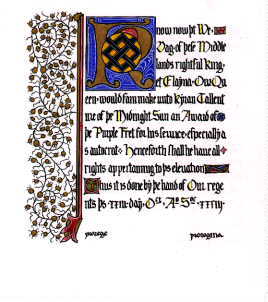 Know now þt We
Vag of þese Middle
lands rightful King
et Elayna Our Qu
een would fain make unto Kynan Tallent
ine of þe Midnight Sun an Award of
þe Purple Fret for his service especially a
s autocrat Henceforth shall he have all
rights appertaining to þs elevation
Thus it is done by þe hand of Our rege
nts þs xxiii day Oct A S xxxiii